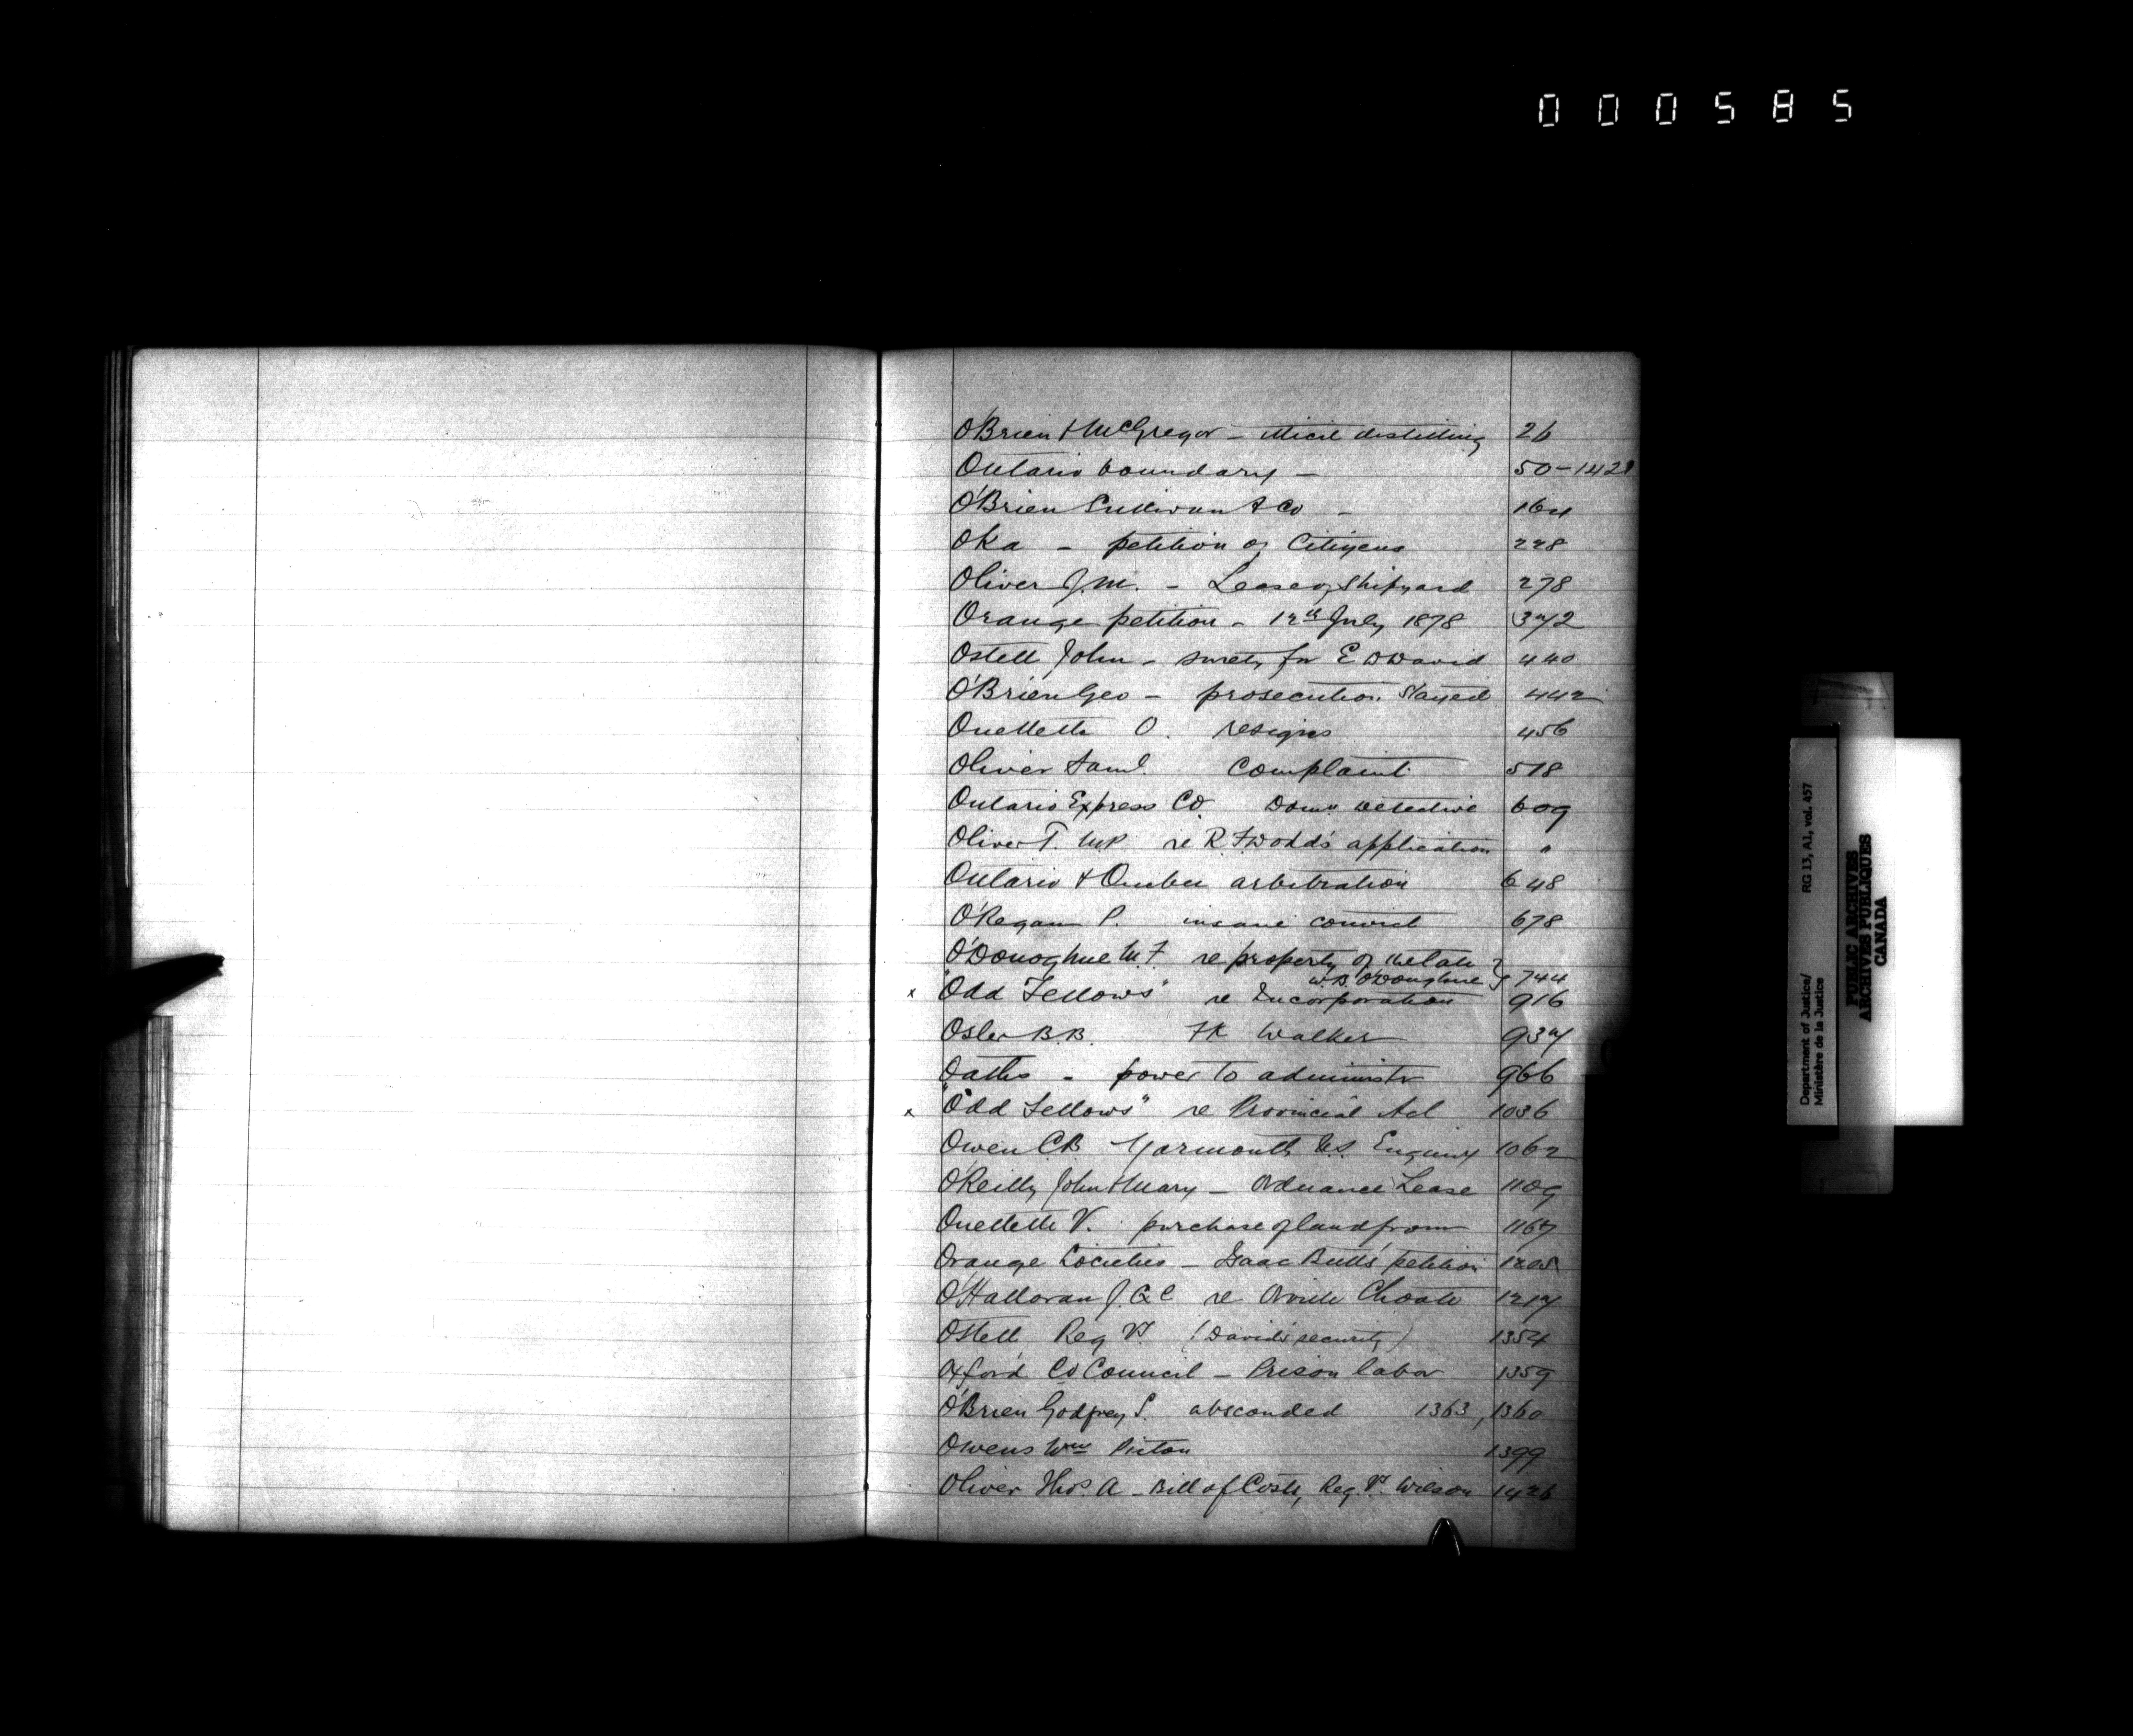 000585
O'Brien & McGregor – illicit distilling 26
Ontario boundary – 50–1421
O'Brien Sullivan & Co – 164
Oka – petition of Citizens 228
Oliver J.M. – Lease of Shipyard 278
Orange petition – 12th July 1878 372
Ostell John – surety for E D David 440
O'Brien Geo – prosecution stayed 442
Ouellette O. resigns 456
Oliver Saml. Complaint 518
Ontario Express Co. Domn Detective 609
Oliver T. M.P. re R. F. Dodd's application "
Ontario & Quebec arbitration 648
O'Regan P. insane convict 678
O'Donoghue M.F. re property of the late
W.B. O'Donoghue } 744
x "Odd Fellows" re Incorporation 916
Osler B.B. FK Walker 937
Oaths – power to administer 966
x "Odd Fellows" re Provincial Act 1036
Owen C.B. Yarmouth N.S. Enquiry 1062
O'Reilly John & Mary – Ordnance Lease 1109
Ouellette V. purchase of land from 1167
Orange Societies – Isaac Butts' petition 1205
O'Halloran J. Q C re Orville Choate 1217
Ostell, Reg Vs (David's security) 1354
Oxford Co Council – Prison labor 1359
O'Brien Godfrey S. absconded 1363, 1360
Owens Wm Picton 1399
Oliver Thos. A – Bill of Costs, Reg. Vs. Wilson 1426
Department of Justice/
Ministère de la Justice
RG 13, A1, vol. 457
PUBLIC ARCHIVES
ARCHIVES PUBLIQUES
CANADA